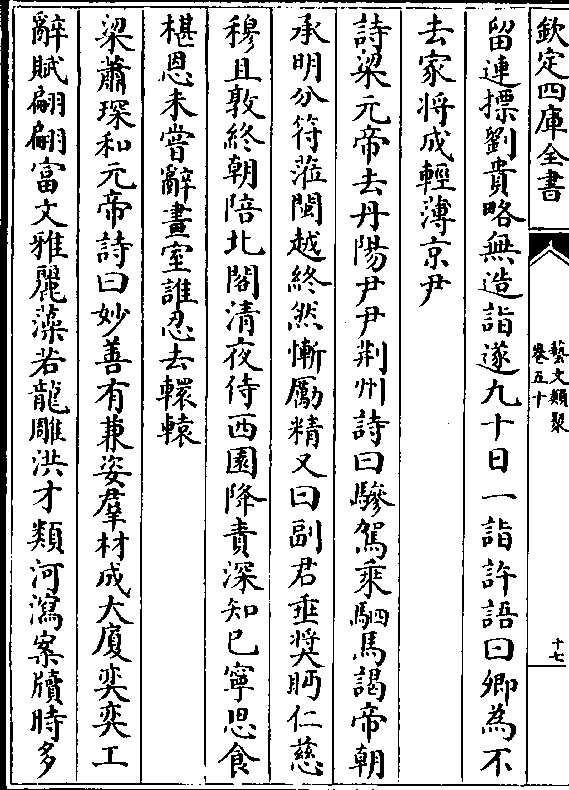 欽定四庫全書
藝文類聚
卷五十
十七
留連摽劉貴略無造詣遂九十日一詣許語曰卿為不
去家将成輕薄京尹
詩梁元帝去丹陽尹尹荆州詩曰驂駕乘駟馬謁帝朝
承明分符蒞閩越終然慚勵精又曰副君垂奬眄仁慈
穆且敦終朝陪北閣清夜侍西園降責深知已寧思食
椹恩未嘗辭畫室誰忍去轘轅
梁蕭琛和元帝詩曰妙善有兼姿羣材成大廈奕奕工
辭賦翩翩富文雅麗藻若龍雕洪才類河瀉案牘時多